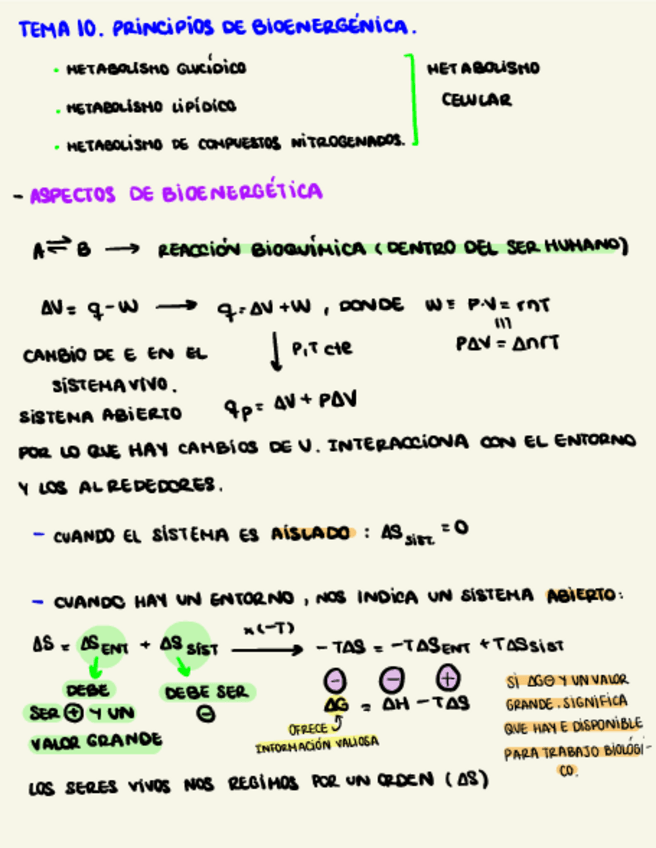 TEMA 10. PRINCIPIOS DE BIOENERGÉNICA.
· METABOLISMO GLUCÍDICO
METABOLISMO
· METABOLISMO LIPÍDICO
CELULAR
· METABOLISMO DE COMPUESTOS NITROGENADOS.
- ASPECTOS DE BIOENERGÉTICA
A ⇌ B → REACCIÓN BIOQUÍMICA (DENTRO DEL SER HUMANO)
ΔV = q - W → q = ΔV + W , DONDE W = P·V = rnT
CAMBIO DE E EN EL
↓ P, T cte
PΔV = ΔnrT
SISTEMA VIVO.
SISTEMA ABIERTO
qp = ΔV + PΔV
POR LO QUE HAY CAMBIOS DE U. INTERACCIONA CON EL ENTORNO
Y LOS ALREDEDORES.
- CUANDO EL SISTEMA ES AÍSLADO : ΔS SIST. = 0
- CUANDO HAY UN ENTORNO, NOS INDICA UN SISTEMA ABIERTO:
ΔS = ΔS ENT + ΔS SIST x(-T) → - TΔS = -TΔS ENT + TΔS SIST
DEBE
SER ⊕ Y UN
VALOR GRANDE
DEBE SER
⊖
⊖ ⊖ ⊕
ΔG = ΔH - TΔS
OFRECE
INFORMACIÓN VALIOSA
SI ΔG⊖ Y UN VALOR
GRANDE. SIGNIFICA
QUE HAY E DISPONIBLE
PARA TRABAJO BIOLÓGI-
CO.
LOS SERES VIVOS NOS REGIMOS POR UN ORDEN (ΔS)